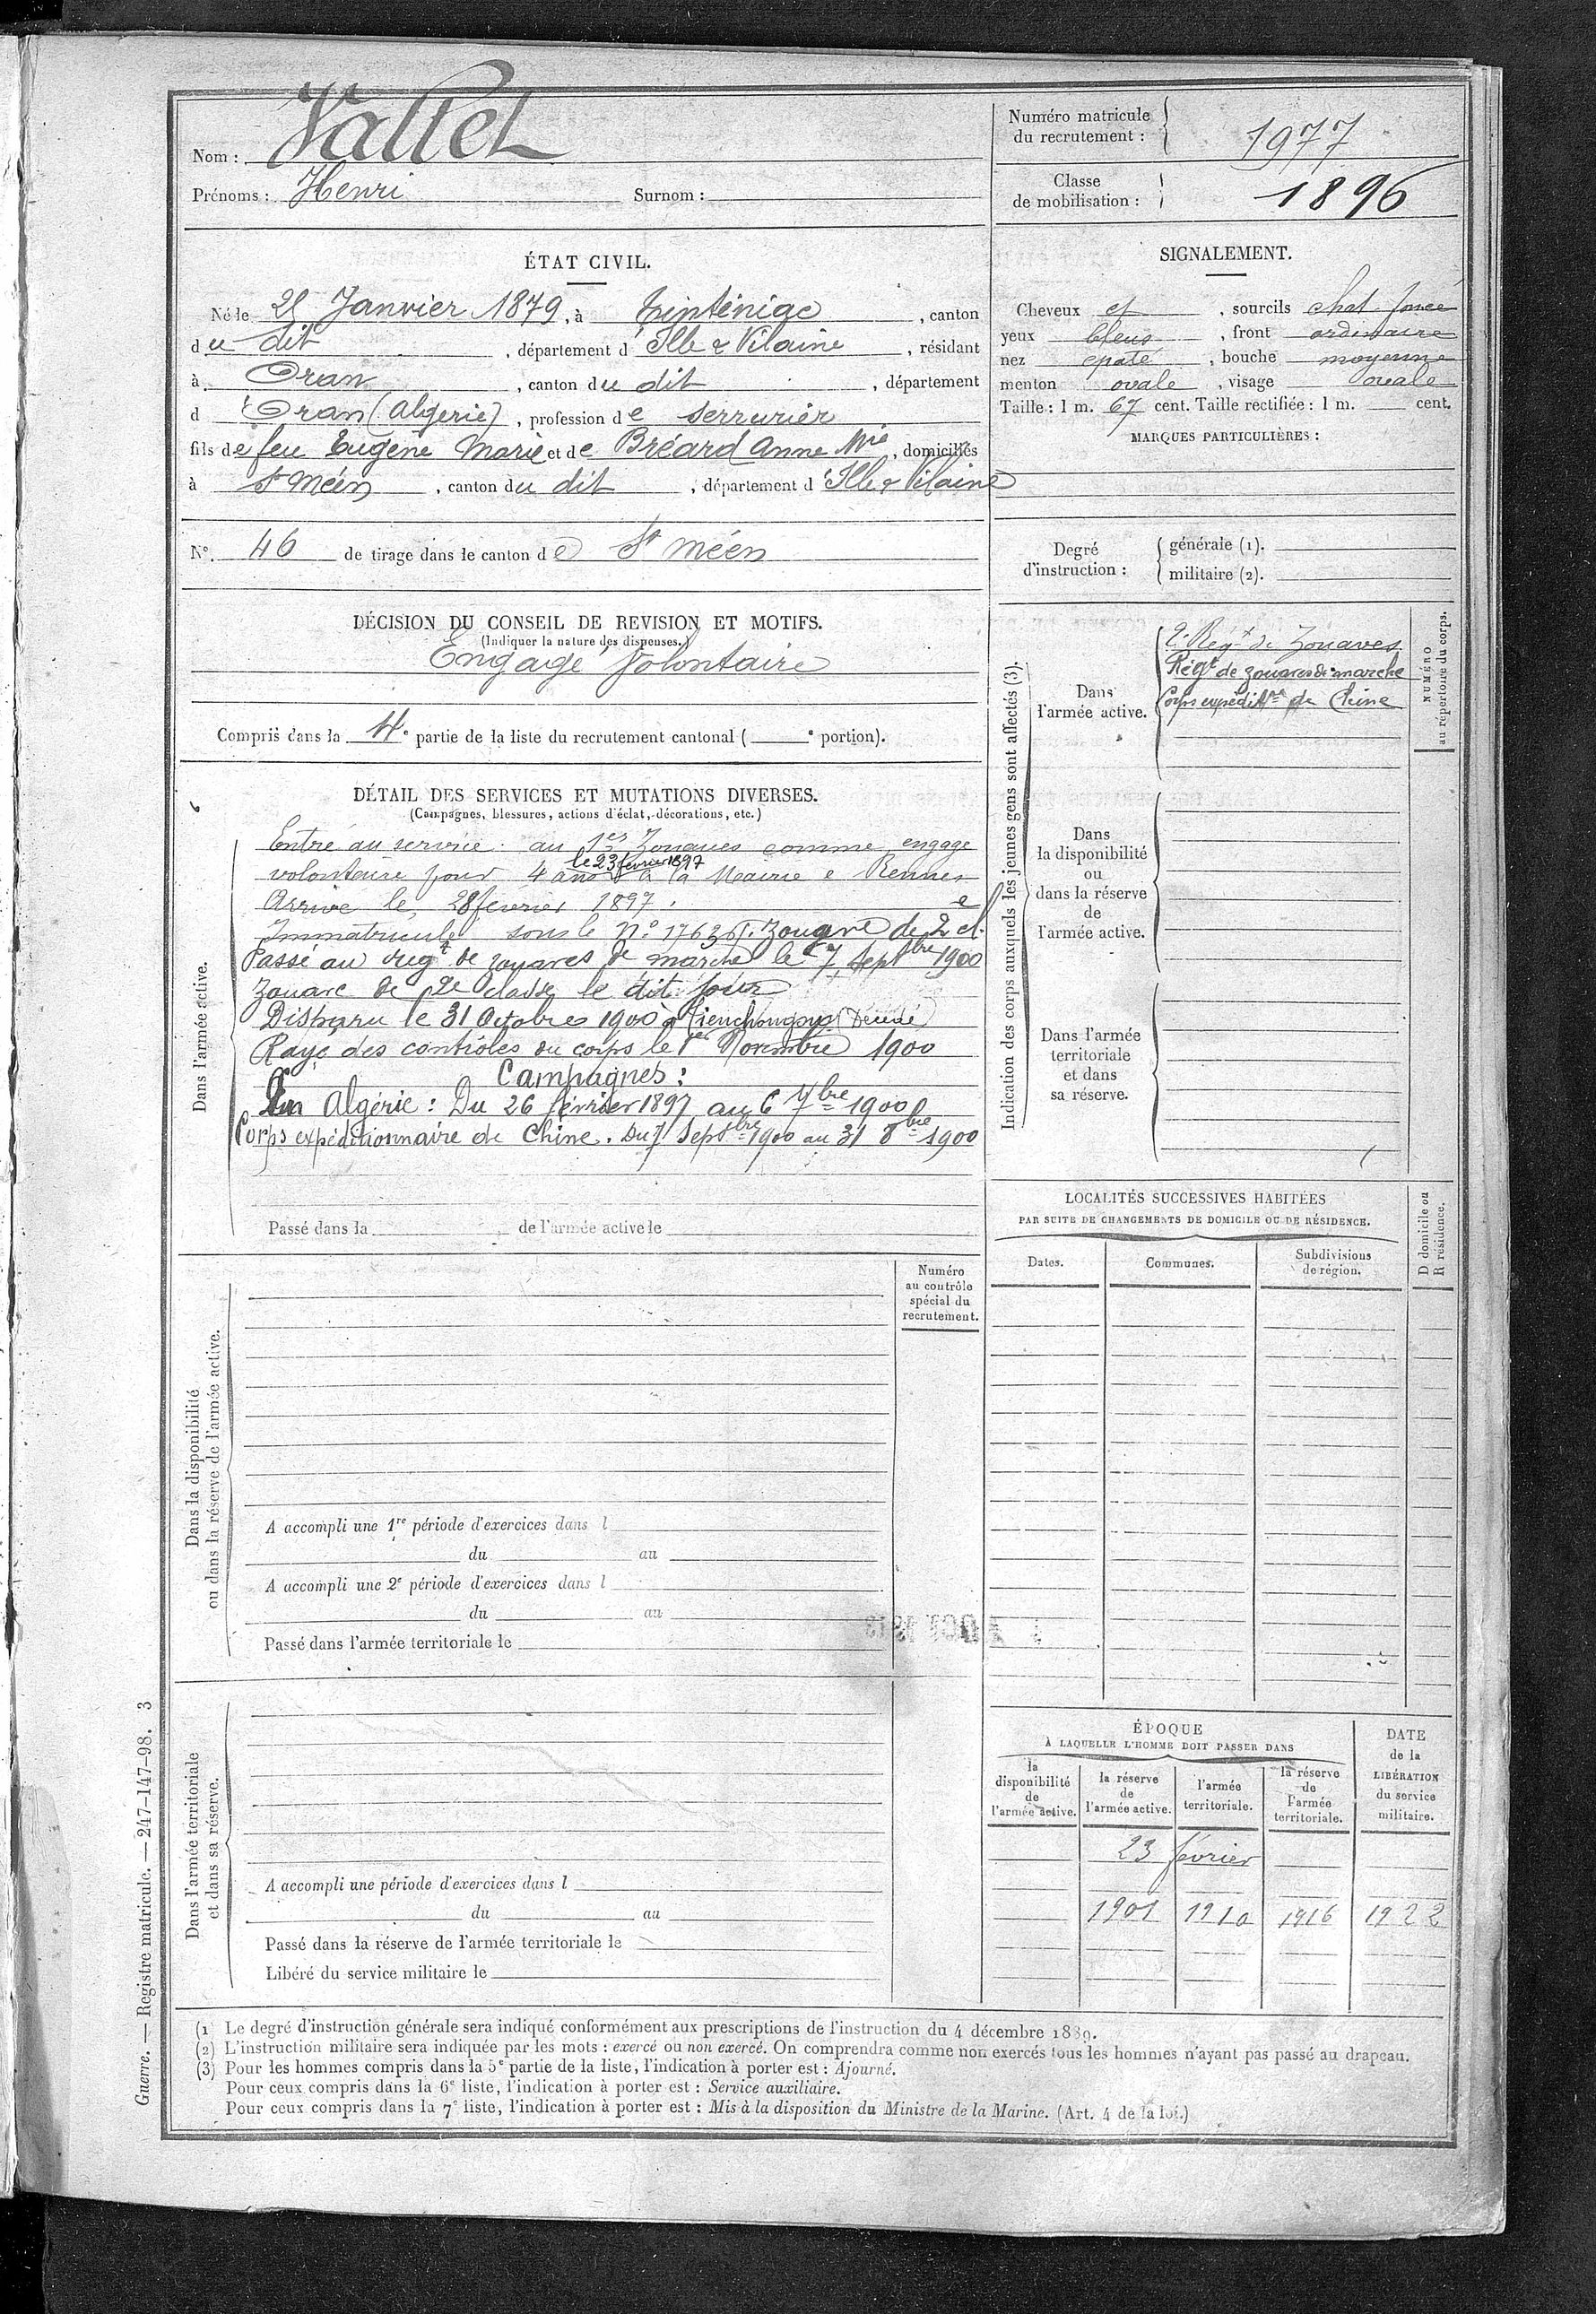 Nom : Vallet
Prénoms : Henri Surnom :
Numéro matricule du recrutement : 1977
Classe de mobilisation : 1896
ÉTAT CIVIL.
Né le 25 Janvier 1879, à Tinténiac, canton
du dit, département d'Ille & Vilaine, résidant
à Oran, canton du dit, département
d'Oran (Algérie), profession de serrurier
fils de feu Eugène Marie et de Bréard Anne Mie, domiciliés
à St Méen, canton du dit, département d'Ille & Vilaine
N°. 46 de tirage dans le canton de St Méen
SIGNALEMENT.
Cheveux et, sourcils chat. foncé
yeux bleus, front ordinaire
nez épaté, bouche moyenne
menton ovale, visage ovale
Taille : 1 m. 67 cent. Taille rectifiée : 1 m. cent.
MARQUES PARTICULIÈRES :
Degré d'instruction :
générale (1).
militaire (2).
DÉCISION DU CONSEIL DE REVISION ET MOTIFS.
(Indiquer la nature des dispenses.)
Engagé Volontaire
Compris dans la 4e partie de la liste du recrutement cantonal ( e portion).
DÉTAIL DES SERVICES ET MUTATIONS DIVERSES.
(Campagnes, blessures, actions d'éclat, décorations, etc.)
Dans l'armée active.
Entré au service au 1er Zouaves comme engagé
le 23 février 1897
volontaire pour 4 ans à la Mairie e Rennes
Arrivé le 28 février 1897. e
Immatriculé sous le N° Zouave de 2 cl.
Passé au régt de zouaves de marche le 7 Septbre 1900
Zouave de 2e classe le dit jour
Disparu le 31 Octobre 1900 à
Rayé des contrôles du corps le 1er Novembre 1900
Campagnes :
En Algérie : Du 26 février 1897 au 6 7bre 1900
Corps expéditionnaire de Chine. Du 7 Septbre 1900 au 31 8bre 1900
Passé dans la de l'armée active le
Indication des corps auxquels les jeunes gens sont affectés (3).
NUMÉRO au répertoire du corps.
Dans l'armée active.
2e Régt de Zouaves
Régt de zouaves de marche
Corps expéditre de Chine
Dans la disponibilité ou dans la réserve de l'armée active.
Dans l'armée territoriale et dans sa réserve.
LOCALITÉS SUCCESSIVES HABITÉES
PAR SUITE DE CHANGEMENTS DE DOMICILE OU DE RÉSIDENCE.
Dates. Communes. Subdivisions de région.
D domicile ou R résidence.
Dans la disponibilité ou dans la réserve de l'armée active.
Numéro au contrôle spécial du recrutement.
A accompli une 1re période d'exercices dans l
du au
A accompli une 2e période d'exercices dans l
du au
Passé dans l'armée territoriale le
Dans l'armée territoriale et dans sa réserve.
A accompli une période d'exercices dans l
du au
Passé dans la réserve de l'armée territoriale le
Libéré du service militaire le
ÉPOQUE
À LAQUELLE L'HOMME DOIT PASSER DANS
la disponibilité de l'armée active.
la réserve de l'armée active.
l'armée territoriale.
la réserve de l'armée territoriale.
DATE de la LIBÉRATION du service militaire.
23 février
1901 1910 1916 1922
(1) Le degré d'instruction générale sera indiqué conformément aux prescriptions de l'instruction du 4 décembre 1889.
(2) L'instruction militaire sera indiquée par les mots : exercé ou non exercé. On comprendra comme non exercés tous les hommes n'ayant pas passé au drapeau.
(3) Pour les hommes compris dans la 5e partie de la liste, l'indication à porter est : Ajourné.
Pour ceux compris dans la 6e liste, l'indication à porter est : Service auxiliaire.
Pour ceux compris dans la 7e liste, l'indication à porter est : Mis à la disposition du Ministre de la Marine. (Art. 4 de la loi.)
Guerre. — Registre matricule. — 247-147-98. 3